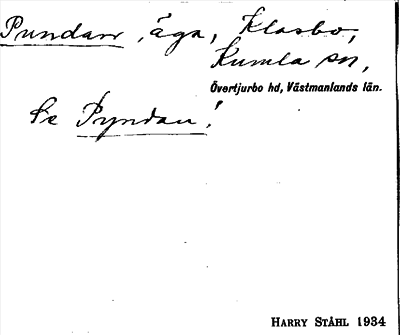 Pundarr, äga, Klasbo,
Kumla sn,
Övertjurbo hd, Västmanlands län.
Se Pyndan!
HARRY STÅHL 1934